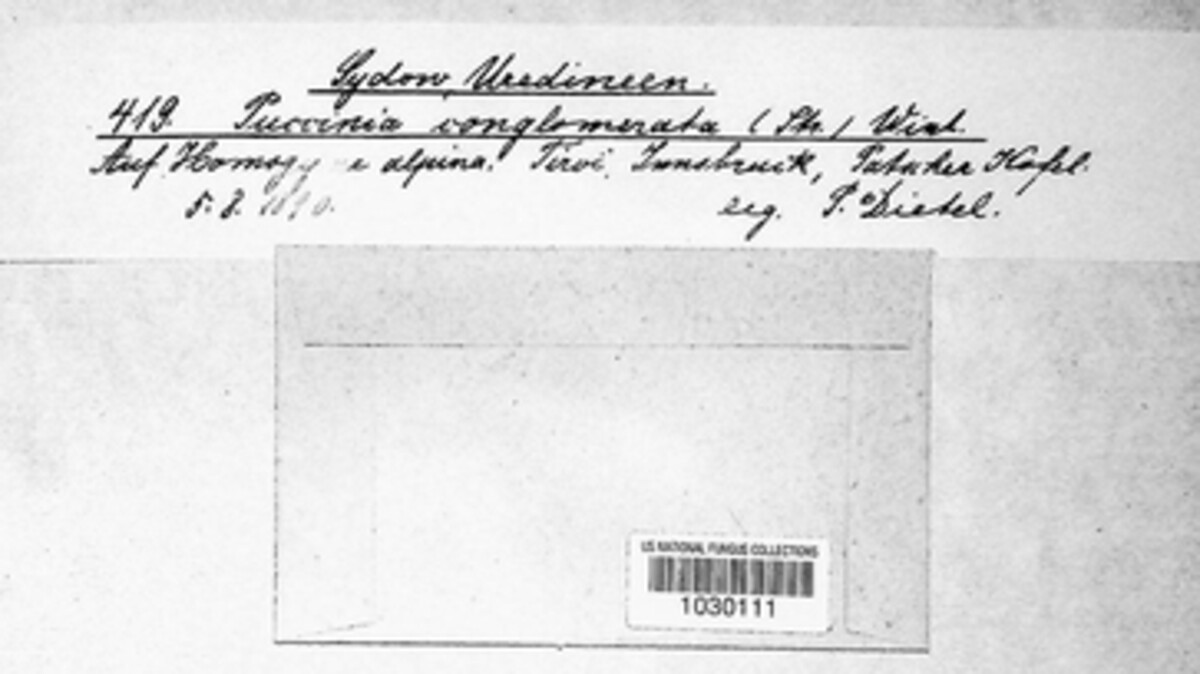 Sydow, Uredineen.
419. Puccinia conglomerata (Str.) Wint.
Auf Homogyne alpina. Tirol, Innsbruck, Patscher Kofel.
5. 8. 1890. leg. P. Dietel.
US NATIONAL FUNGUS COLLECTIONS
1030111